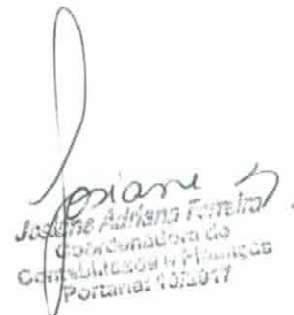 Josiane
Josiane Adriana Ferreira
Coordenadora de
Contabilidade e Finanças
Portaria: 10/2017